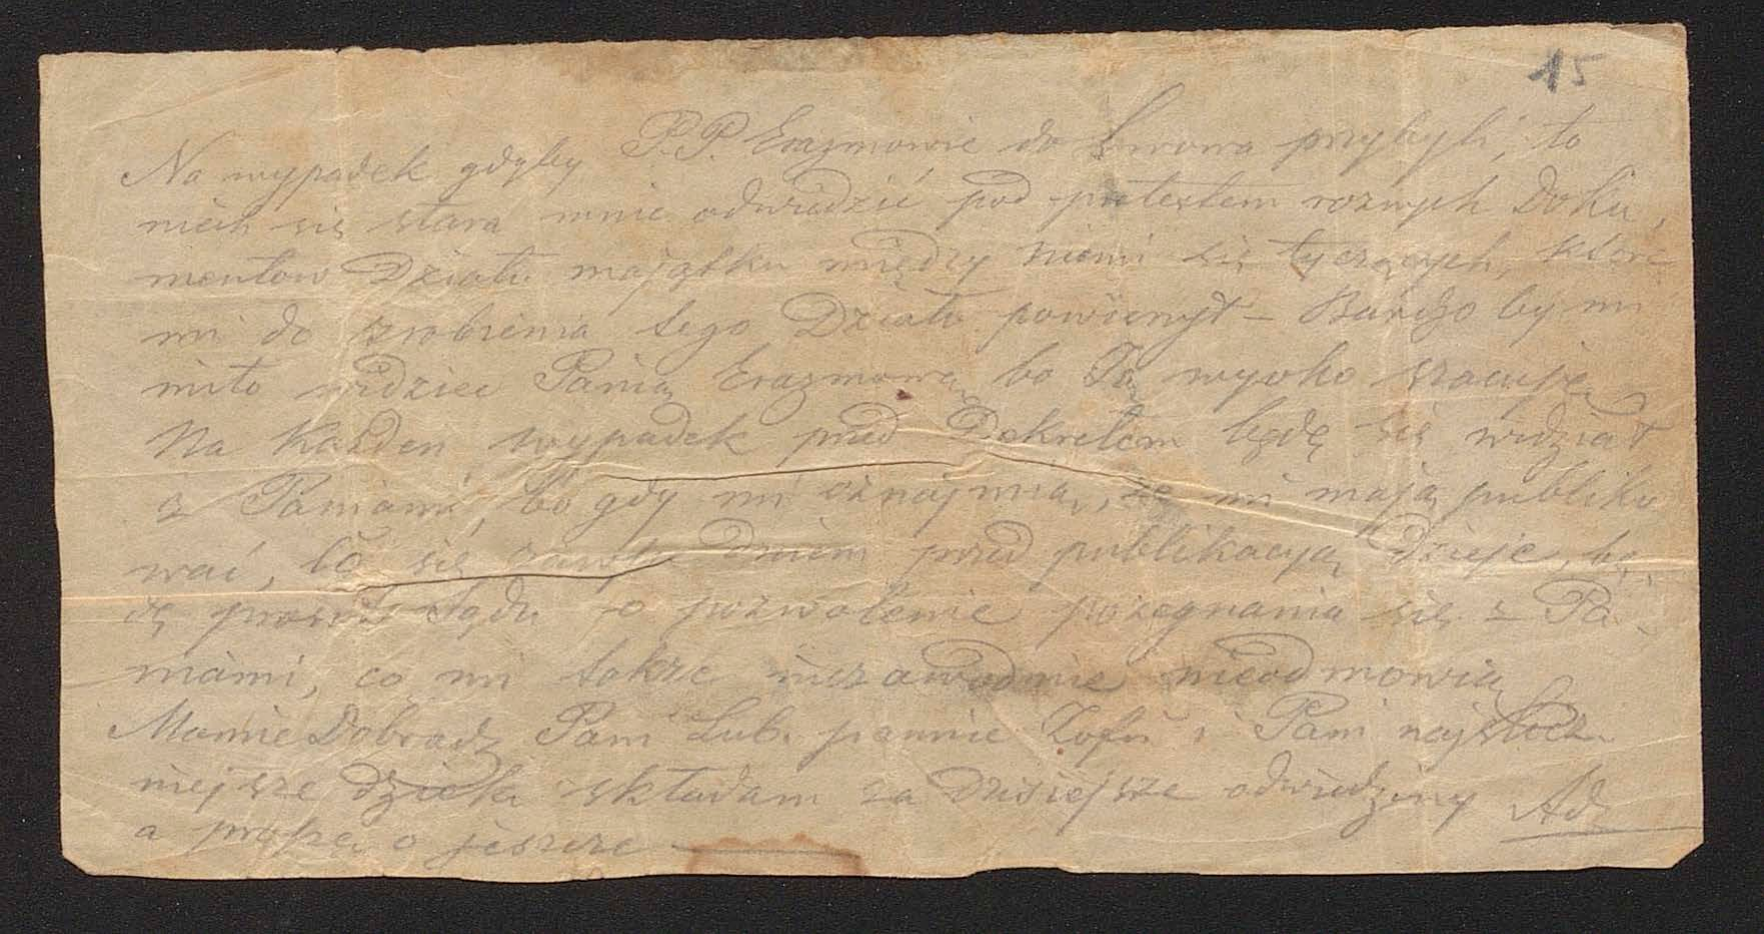 15
Na wypadek gdyby P.P. Erazmowie do Lwowa przybyli, to
niech się stara mnie odwiedzić pod pretextem roznych Doku,
mentow Działu majątku między niemi się tyczących, które
mi do zrobienia tego Działu powierzył – Bardzo by mi
miło widziec Panią Erazmową, bo Ją wysoko szacuję
Na każden wypadek pred Dekretem będę się widział
z Paniami, bo gdy mi oznajmią, że mi mają publiko
wać, co się dniem przed publikacyją dzieje, bę,
dę prosił Sądu o pozwolenie pożegnania się z Pa,
niami, co mi takze niezawodnie nieodmowią
Mamie Dobrodz Pani Lub. pannie Zofii i Pani
niejsze dzięki składam za dzisiejsze odwiedziny Ad
a proszę o jeszcze